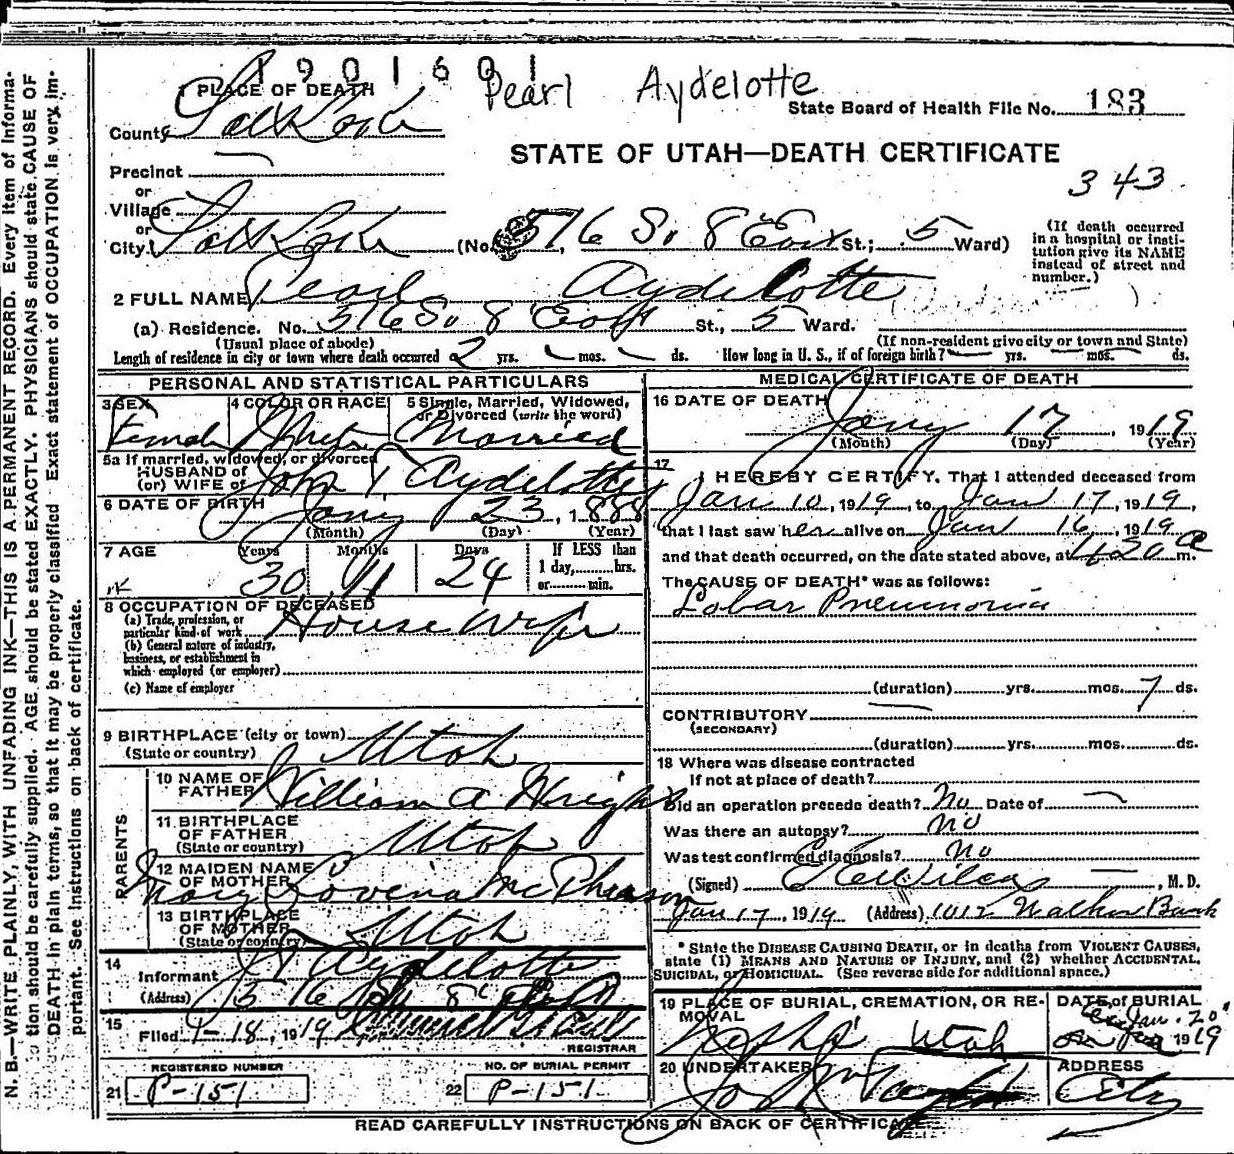 1901601
Pearl Aydelotte
PLACE OF DEATH
State Board of Health File No. 183
County Salt Lake
STATE OF UTAH—DEATH CERTIFICATE
343
Precinct
or
Village
or
City Salt Lake (No. 516 So. 8 East St.; 5 Ward)
(If death occurred in a hospital or institution give its NAME instead of street and number.)
2 FULL NAME Pearl Aydelotte
(a) Residence. No. 516 So 8 East St., 5 Ward.
(Usual place of abode) (If non-resident give city or town and State)
Length of residence in city or town where death occurred 2 yrs. mos. ds. How long in U. S., if of foreign birth? yrs. mos. ds.
PERSONAL AND STATISTICAL PARTICULARS
3 SEX Female
4 COLOR OR RACE White
5 Single, Married, Widowed, or Divorced (write the word) Married
5a If married, widowed, or divorced
HUSBAND of
(or) WIFE of John T Aydelotte
6 DATE OF BIRTH Jany 23, 1888
(Month) (Day) (Year)
7 AGE Years 30 Months 11 Days 24
If LESS than 1 day, hrs. or min.
8 OCCUPATION OF DECEASED
(a) Trade, profession, or particular kind of work House Wife
(b) General nature of industry, business, or establishment in which employed (or employer)
(c) Name of employer
9 BIRTHPLACE (city or town)
(State or country) Utah
PARENTS
10 NAME OF FATHER William A Wright
11 BIRTHPLACE OF FATHER (State or country) Utah
12 MAIDEN NAME OF MOTHER Mary Lovena McPhearson
13 BIRTHPLACE OF MOTHER (State or country) Utah
14 Informant J T Aydelotte
(Address) 516 So 8 East
15 Filed 1-18, 1919
REGISTRAR
REGISTERED NUMBER
21 P-151
NO. OF BURIAL PERMIT
22 P-151
MEDICAL CERTIFICATE OF DEATH
16 DATE OF DEATH Jany 17, 1919
(Month) (Day) (Year)
17 I HEREBY CERTIFY, That I attended deceased from
Jan 10, 1919, to Jan 17, 1919,
that I last saw her alive on Jan 16, 1919
and that death occurred, on the date stated above, at 420 a m.
The CAUSE OF DEATH* was as follows:
Lobar Pneumonia
(duration) yrs. mos. 7 ds.
CONTRIBUTORY
(SECONDARY)
(duration) yrs. mos. ds.
18 Where was disease contracted
If not at place of death?
Did an operation precede death? No Date of
Was there an autopsy? No
Was test confirmed diagnosis? No
(Signed) , M. D.
Jan 17, 1919 (Address) 1012 Walker Bank
* State the DISEASE CAUSING DEATH, or in deaths from VIOLENT CAUSES, state (1) MEANS AND NATURE OF INJURY, and (2) whether ACCIDENTAL, SUICIDAL, or HOMICIDAL. (See reverse side for additional space.)
19 PLACE OF BURIAL, CREMATION, OR REMOVAL Nephi Utah
DATE of BURIAL Jan. 20 1919
20 UNDERTAKER
ADDRESS City
READ CAREFULLY INSTRUCTIONS ON BACK OF CERTIFICATE
N. B.—WRITE PLAINLY, WITH UNFADING INK—THIS IS A PERMANENT RECORD. Every item of information should be carefully supplied. AGE should be stated EXACTLY. PHYSICIANS should state CAUSE OF DEATH in plain terms, so that it may be properly classified. Exact statement of OCCUPATION is very important. See Instructions on back of certificate.